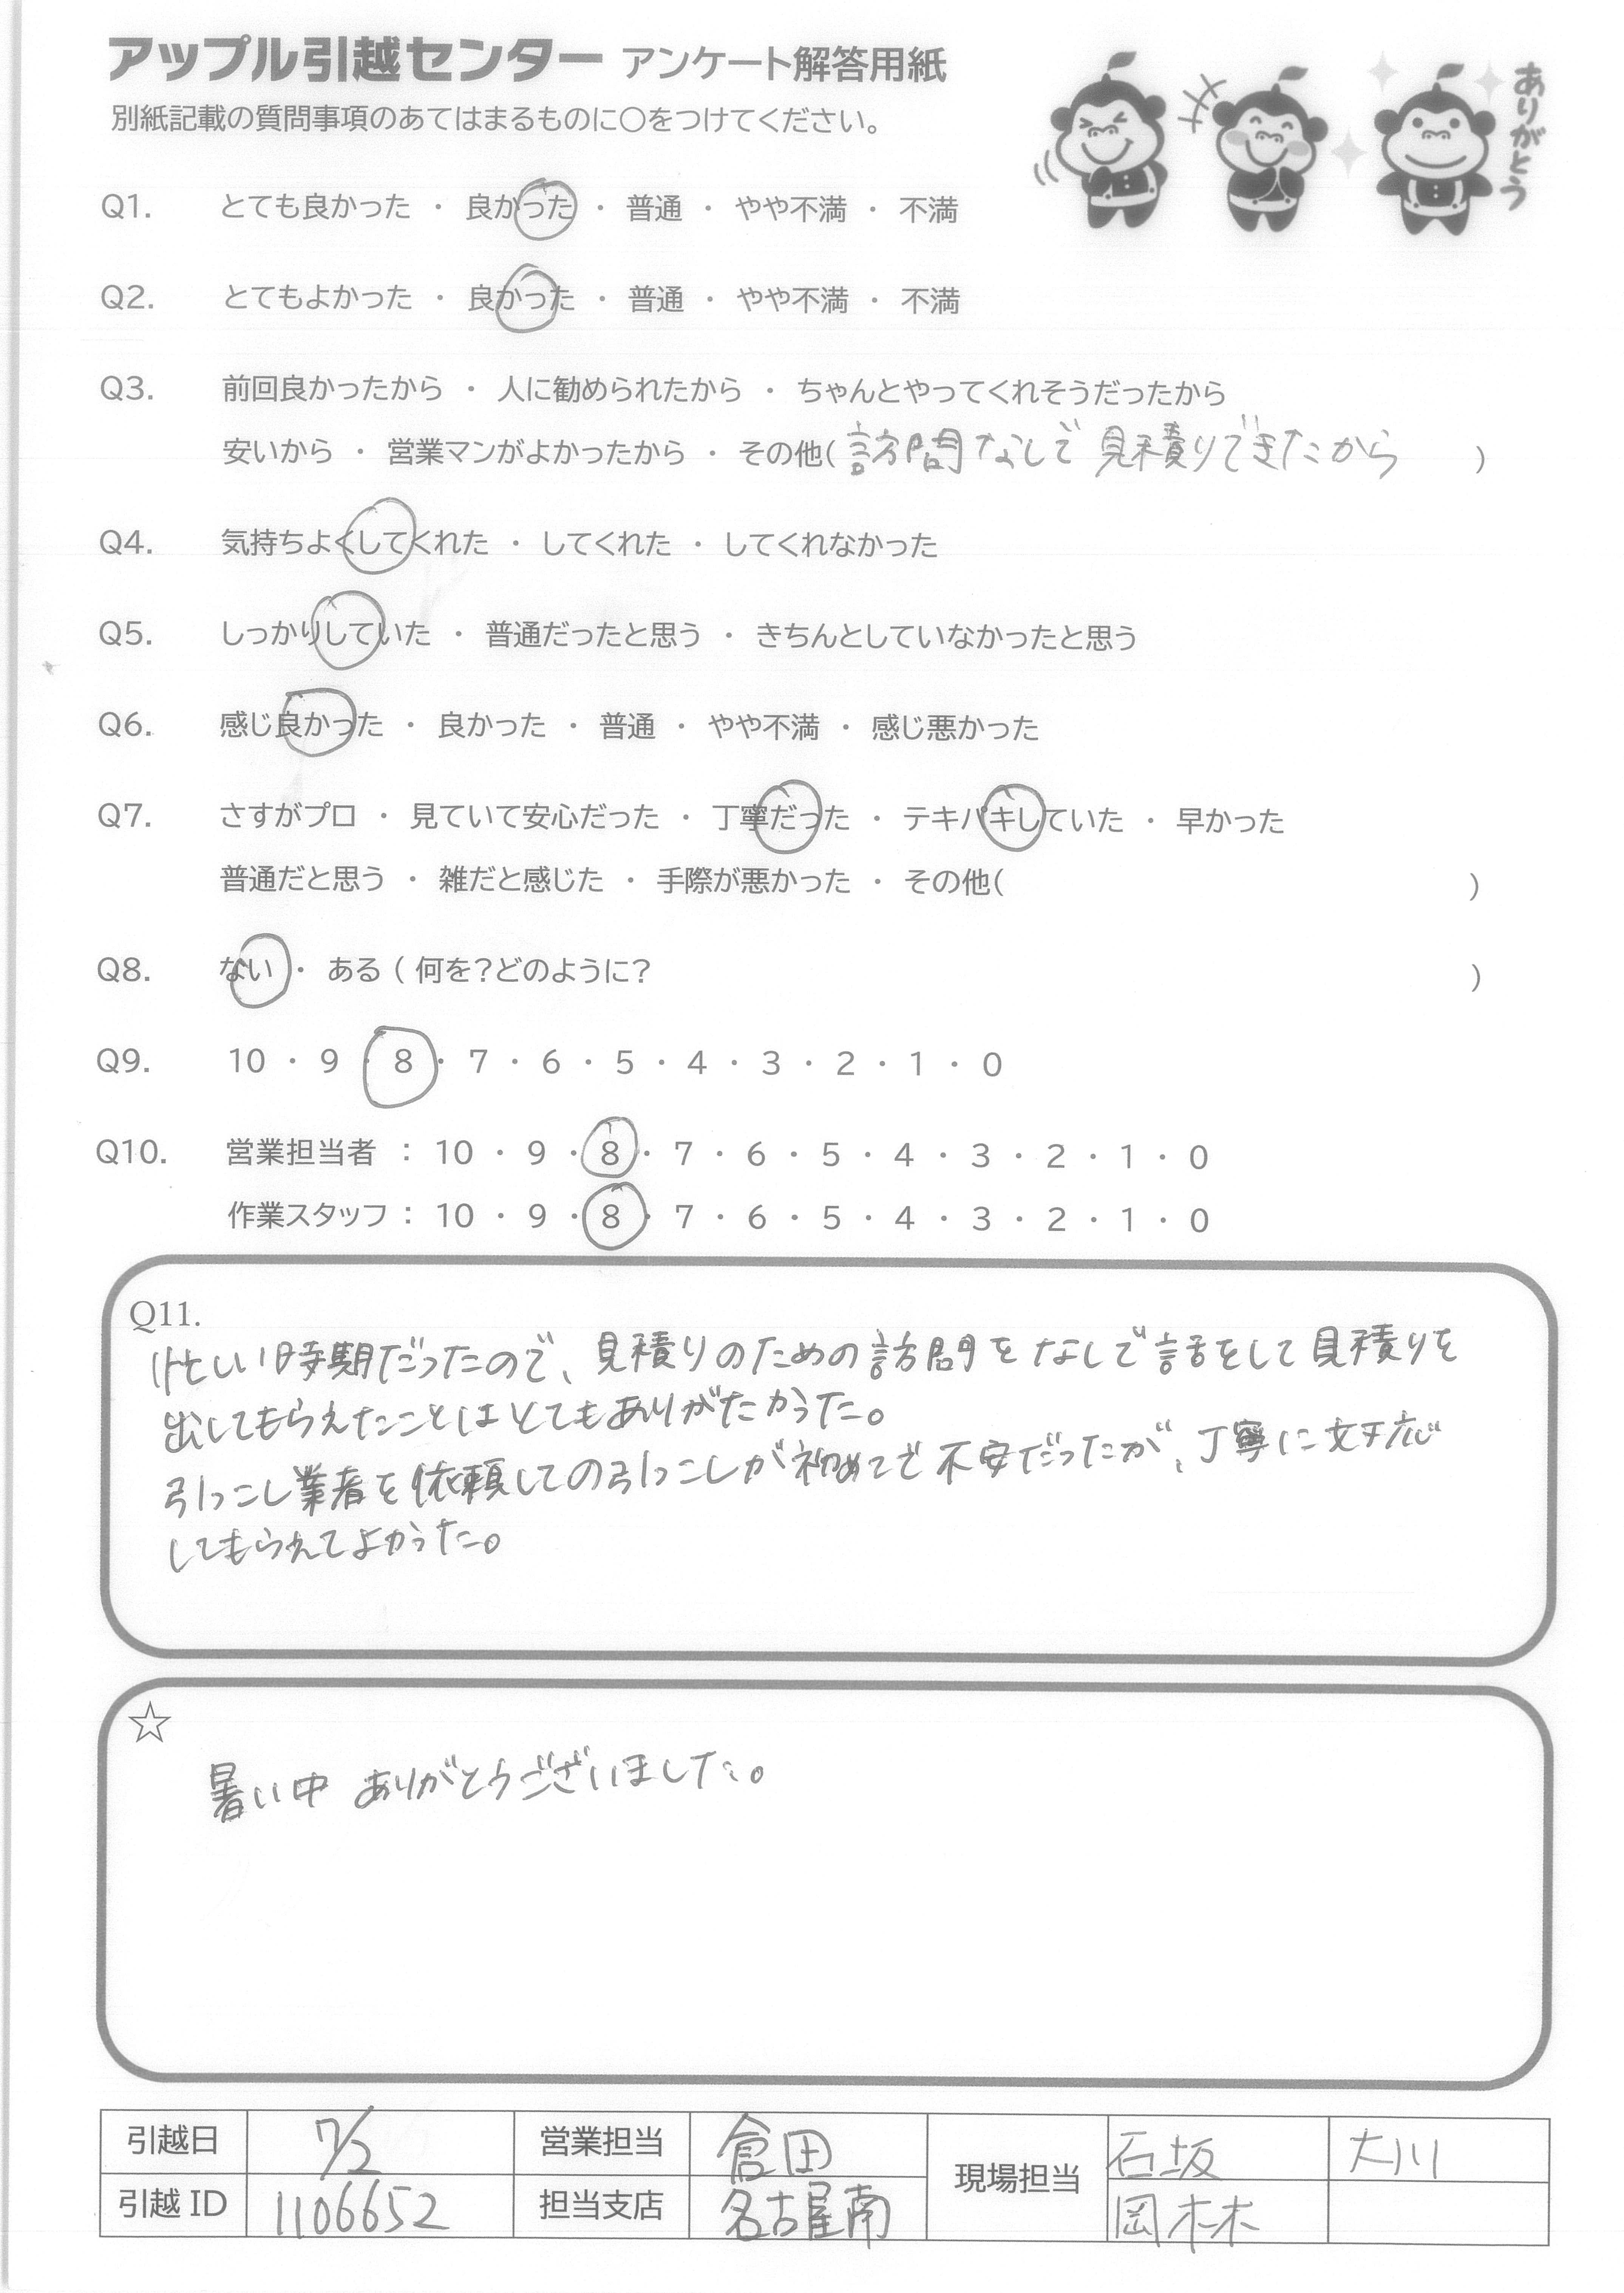 アップル引越センター アンケート解答用紙
ありがとう
別紙記載の質問事項のあてはまるものに○をつけてください。
Q1. とても良かった ・ 良かった ・ 普通 ・ やや不満 ・ 不満
Q2. とてもよかった ・ 良かった ・ 普通 ・ やや不満 ・ 不満
Q3. 前回良かったから ・ 人に勧められたから ・ ちゃんとやってくれそうだったから
安いから ・ 営業マンがよかったから ・ その他( 訪問なしで見積りできたから )
Q4. 気持ちよくしてくれた ・ してくれた ・ してくれなかった
Q5. しっかりしていた ・ 普通だったと思う ・ きちんとしていなかったと思う
Q6. 感じ良かった ・ 良かった ・ 普通 ・ やや不満 ・ 感じ悪かった
Q7. さすがプロ ・ 見ていて安心だった ・ 丁寧だった ・ テキパキしていた ・ 早かった
普通だと思う ・ 雑だと感じた ・ 手際が悪かった ・ その他( )
Q8. ない ・ ある ( 何を?どのように? )
Q9. 10 ・ 9 ・ 8 ・ 7 ・ 6 ・ 5 ・ 4 ・ 3 ・ 2 ・ 1 ・ 0
Q10. 営業担当者 : 10 ・ 9 ・ 8 ・ 7 ・ 6 ・ 5 ・ 4 ・ 3 ・ 2 ・ 1 ・ 0
作業スタッフ : 10 ・ 9 ・ 8 ・ 7 ・ 6 ・ 5 ・ 4 ・ 3 ・ 2 ・ 1 ・ 0
Q11.
忙しい時期だったので、見積りのための訪問をなしで話をして見積りを
出してもらえたことはとてもありがたかった。
引っこし業者を依頼しての引っこしが初めてで不安だったが、丁寧に対応
してもらえてよかった。
☆
暑い中 ありがとうございました。
引越日 7/2 営業担当 倉田 現場担当 石坂 大川
引越 ID 1106652 担当支店 名古屋南 岡林